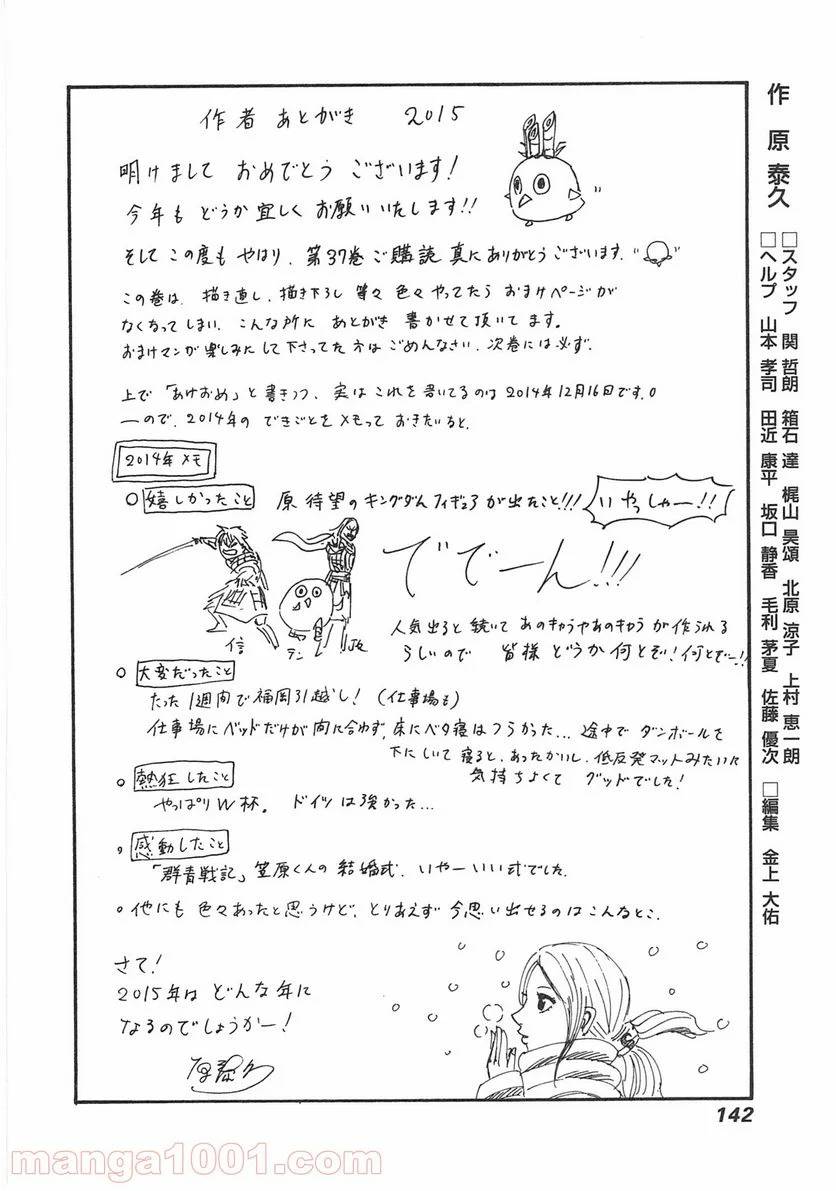 作者 あとがき 2015
明けまして おめでとう ございます!
今年も どうか 宜しく お願いいたします!!
そして この度も やはり、第37巻 ご購読 真に ありがとう ございます.
この巻は、描き直し、描き下ろし 等々 色々 やってたら おまけページが
なくなってしまい、こんな所に あとがき 書かせて頂いてます。
おまけマンが楽しみにして下さってた方は ごめんなさい、次巻には必ず.
上で「あけおめ」と書きつつ、実は これを書いてるのは 2014年12月16日です。
ーので、2014年の できごとを メモって おきたいると.
2014年メモ
○ 嬉しかったこと 原 待望の キングダム フィギュア が出たこと!!!
いやっしゃー!!
ででーん!!!
信
テン
人気出ると 続いて あのキャラやあのキャラ が 作られる
らしいので 皆様 どうか 何とぞ!何とぞー!!
○ 大変だったこと
たった 1週間で 福岡引越し!(仕事場も)
仕事場に ベッドだけが 間に合わず、床にベタ寝はつらかった… 途中で ダンボールを
下にしいて 寝ると、あったかいし、低反発マットみたいに
気持ちよくて グッドでした!
○ 熱狂したこと
やっぱり W杯。 ドイツは強かった…
○ 感動したこと
「群青戦記」笠原くんの 結婚式. いやー いい式でした.
○ 他にも 色々あったと思うけど、とりあえず 今思い出せるのはこんなとこ.
さて!
2015年は どんな年に
なるのでしょうかー!
原泰久
作 原 泰久
□スタッフ 関 哲朗 箱石 達 梶山 昊頌 北原 涼子 上村 恵一朗
□ヘルプ 山本 孝司 田近 康平 坂口 静香 毛利 茅夏 佐藤 優次 □編集 金上 大佑
142
manga1001.com